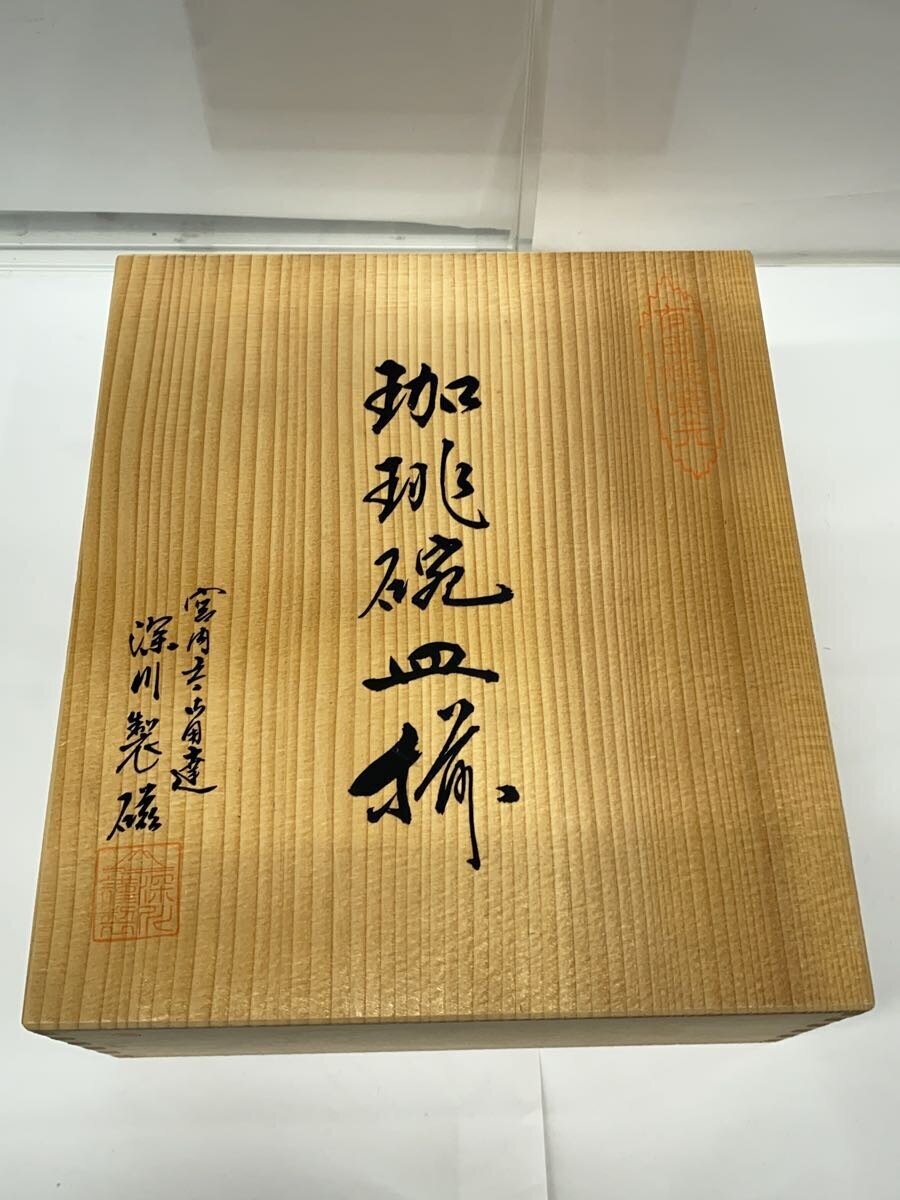 珈琲碗皿揃
宮内庁御用達
深川製磁